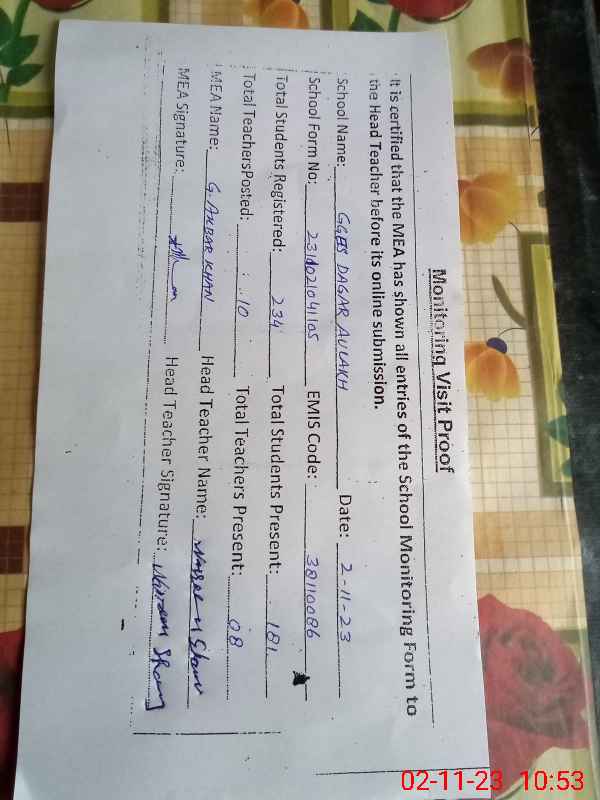 Monitoring Visit Proof
It is certified that the MEA has shown all entries of the School Monitoring Form to
the Head Teacher before its online submission.
School Name: GGES DAGAR AULAKH Date: 2-11-23
School Form No: EMIS Code: 38110086
Total Students Registered: 234 Total Students Present: 181
Total TeachersPosted: 10 Total Teachers Present: 08
MEA Name: G. AKBAR KHAN Head Teacher Name:
MEA Signature: Head Teacher Signature:
02-11-23 10:53